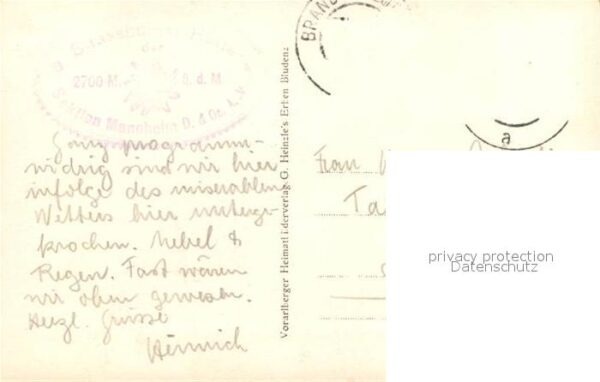 Strassburger Hütte
der
2700 M. ü. d. M
Sektion Mannheim D. & Oe. A. V.
Ganz programm-
widrig sind wir hier
infolge des miserablen
Wetters hier unterge-
krochen. Nebel &
Regen. Fast wären
wir oben gewesen.
Herzl. Grüsse
Heinrich
Vorarlberger Heimatbilderverlag G. Heinzle's Erben Bludenz
BRAND
a
Frau
Ta
privacy protection
Datenschutz